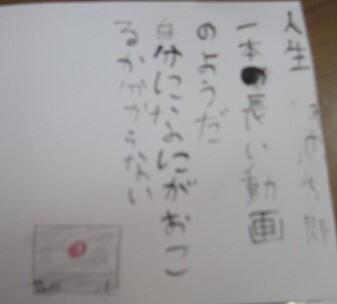 人生
一本の長い動画
のようだ
自分になにがおこ
るか分からない